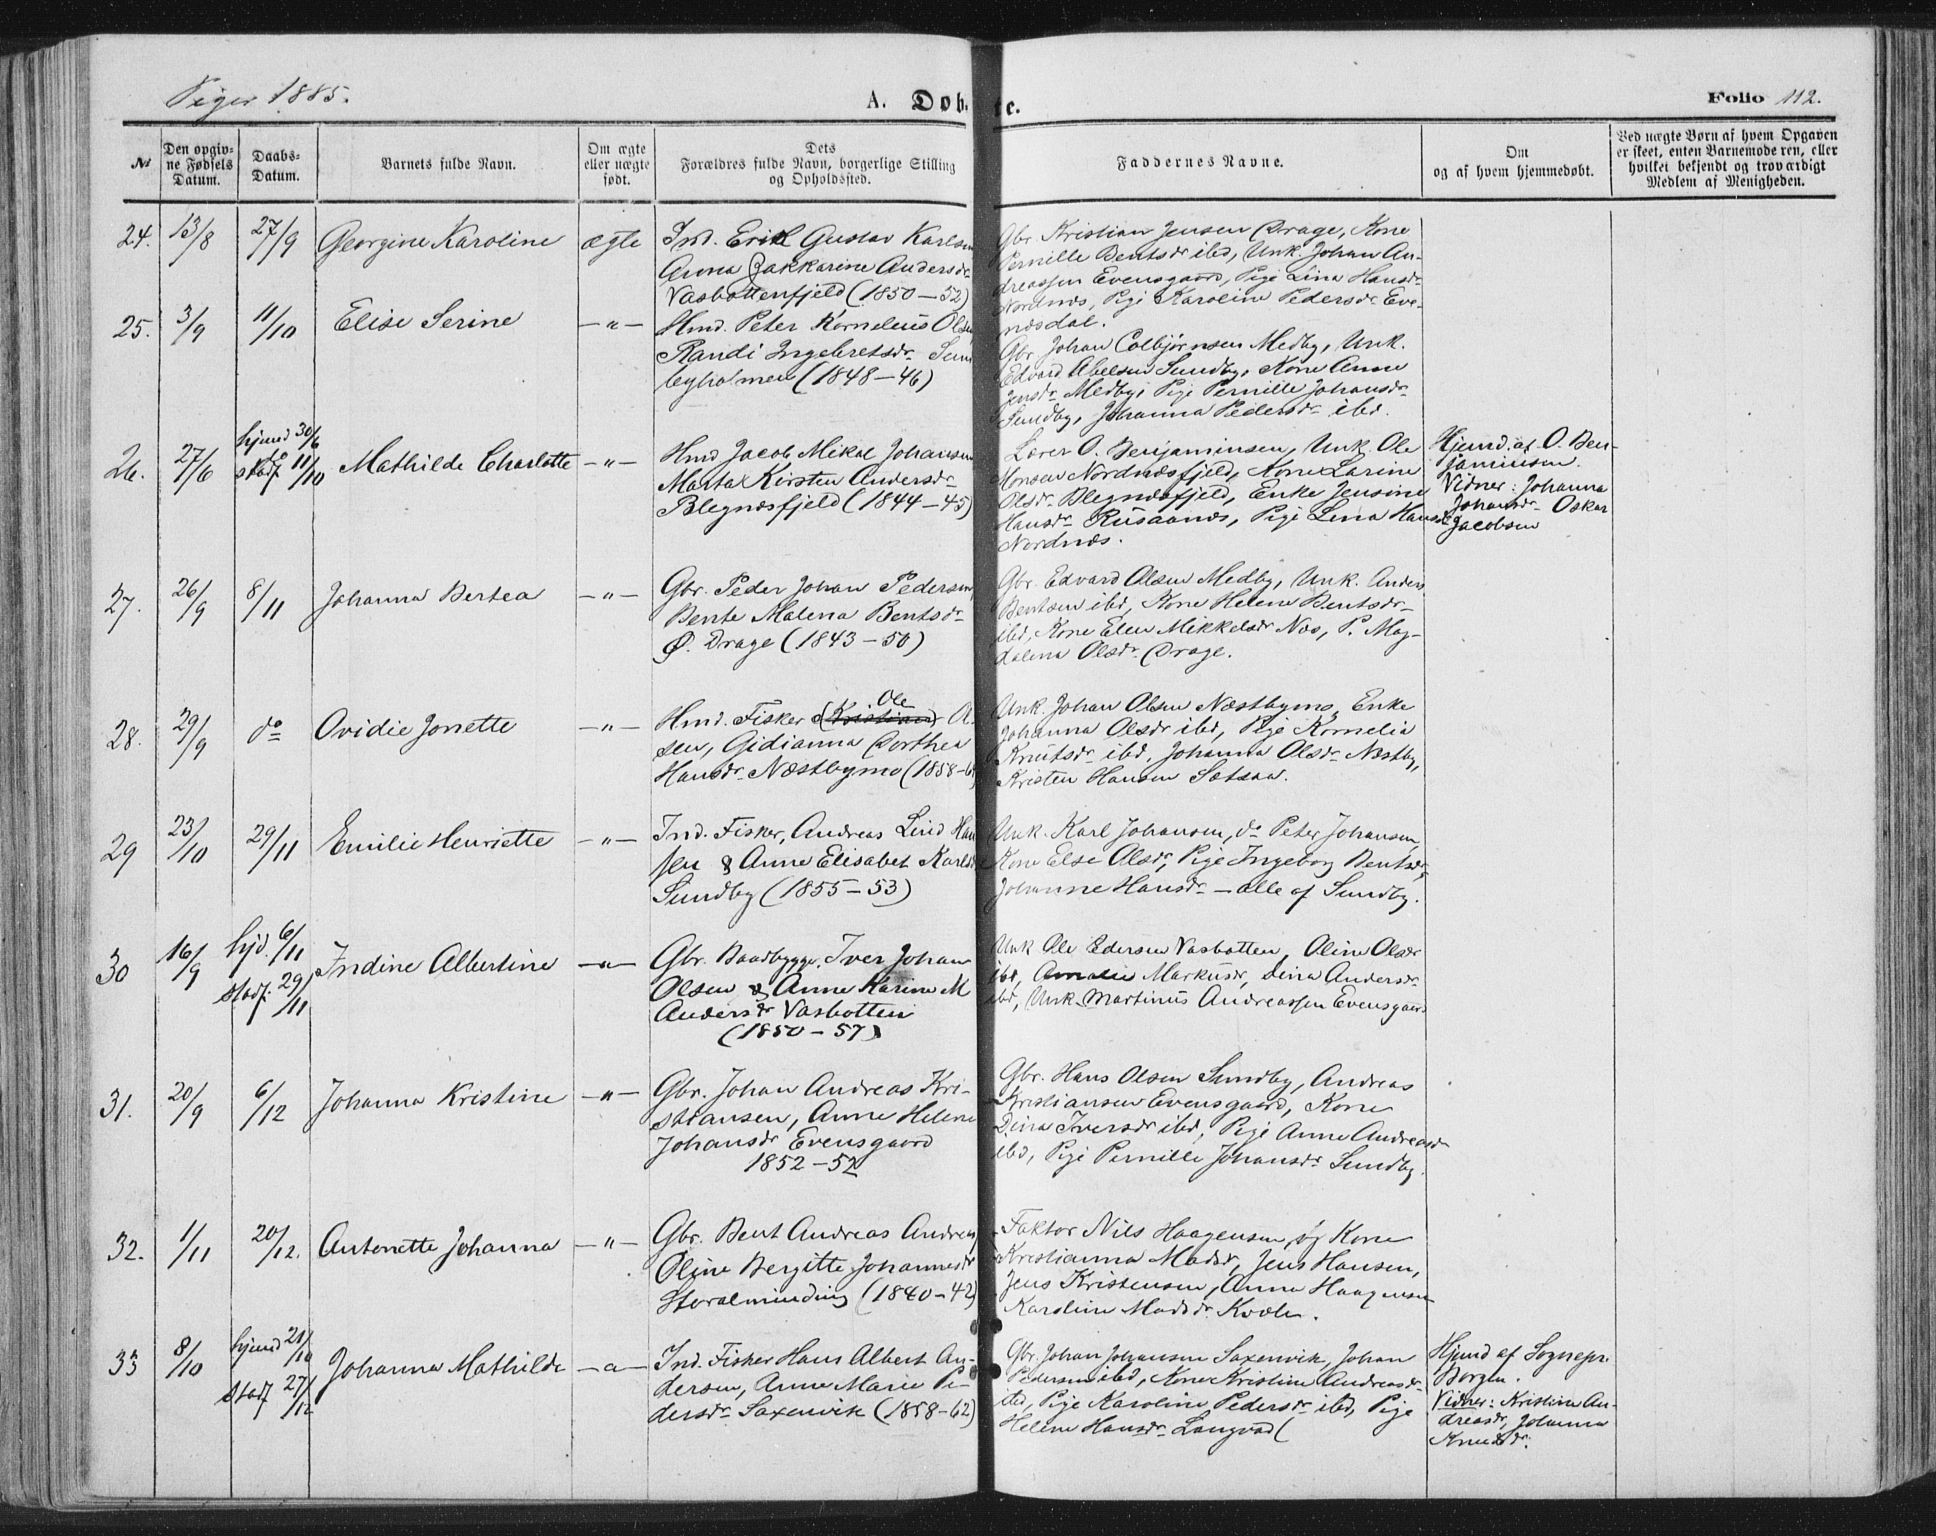 Piger 1885.
A. Døb-
te.
Folio 112.
№
Den opgiv-
ne Fødsels
Datum.
Daabs-
Datum.
Barnets fulde Navn.
Om ægte
eller uægte
født.
Dets
Forældres fulde Navn, borgerlige Stilling
og Opholdssted.
Faddernes Navne.
Om
og af hvem hjemmedøbt.
Ved uægte Børn af hvem Opgaven
er skeet, enten Barnemoderen, eller
hvilket bekjendt og troværdigt
Medlem af Menigheden.
24. 13/8 27/9 Georgine Karoline ægte
Ind. Erik Gustav Karlsen
Anna Zakkarine Andersdr
Vasbottenfjeld (1850-52)
Gbr. Kristian Jensen Drage, Kone
Pernille Bentsdr ibd, Unk. Johan An-
dreassen Evensgaard, Pige Lina Hansdr
Nordnæs, Pige Karoline Pedersdr Eve-
næsdal.
25. 3/9 11/10 Elise Serine -"-
Hmd. Peter Kornelius Olsen
Randi Ingebretsdr Sund
byholmen (1848-46)
Gbr Johan Colbjørnsen Medby, Unk.
Edvard Abelsen Sundby, Kone Anne
Jensdr Medby, Pige Pernille Johansdr
Sundby, Johanna Pedersdr ibd.
26. 27/6 hjemd 30/6
stadf. 11/10 Mathilde Charlotte -"-
Hmd Jacob Mikal Johansen
Marta Kirsten Andersdr
Blegnæsfjeld (1844-45)
Lærer O. Benjaminsen, Unk. Ole
Monsen Nordnæsfjeld, Kone Larine
Olsdr Blegnæsfjeld, Enke Jensine
Hansdr Rusaanæs, Pige Lena Hansdr
Nordnæs.
Hjemd. af O. Ben-
jaminsen.
Vidner: Johanna
Johansdr Oskar
Jacobsen
27. 26/9 8/11 Johanna Bertea -"-
Gbr. Peder Johan Pedersen
Bente Malena Bentsdr
Ø. Drage (1843-50)
Gbr. Edvard Olsen Medby, Unk. Anders
Bentsen ibd, Kone Helene Bentsdr
ibd, Kone Elen Mikkelsdr Næs, P. Mag-
dalena Olsdr Drage.
28. 29/9 do Ovidie Jonette -"-
Ole
Hmd. Fisker (Kristian)
sen, Gidianna Dorthea
Hansdr Næstbymo (1858-
Unk. Johan Olsen Næstbymo, Enke
Johanna Olsdr ibd, Pige Kornelia
Knutsdr ibd, Johanna Olsdr Næstby,
Kristen Hansen Sætsaa.
29 23/10 29/11 Emilie Henriette -"-
Ind. Fisker, Andreas Lind Han
sen & Anne Elisabet Karlsdr
Sundby (1855-53)
Unk. Karl Johansen, do Peter Johansen
Kone Else Olsdr, Pige Ingeborg Bentsdr,
Johanne Hansdr - alle af Sundby.
30 16/9 hjd. 6/11
stadf. 29/11 Indine Albertine -"-
Gbr. Baadbygger Iver Johan
Olsen & Anne Karine M
Andersdr Vasbotten
(1850-57)
Unk Ole Edersen Vasbotten, Oline Olsdr
ibd, Amalie Markusdr, Dina Andersdr
ibd, Unk. Martinus Andreassen Evensgaard
31. 20/9 6/12 Johanna Kristine -"-
Gbr. Johan Andreas Kri-
stiansen, Anne Helene
Johansdr Evensgaard
1852-52
Gbr. Hans Olsen Sundby, Andreas
Kristiansen Evensgaard, Kone
Dina Iversdr ibd, Pige Anne Andreasdr
ibd, Pige Pernille Johansdr Sundby.
32. 1/11 20/12. Antonette Johanna -"-
Gbr. Bent Andreas Andreas
Oline Bergitte Johannesdr
Storalminding (1840-42)
Faktor Nils Haagensen, og Kone
Kristianna Madsdr, Jens Hansen,
Jens Kristensen, Anna Haagensen
Karoline Madsdr Kvæle.
33 8/10 hjemd 21/10
stadf 27/12 Johanna Mathilde -"-
Ind. Fisker Hans Albert An-
dersen, Anne Marie Pe-
dersdr Saxenvik (1858-62)
Gbr. Johan Johansen Saxenvik, Johan
Pedersen ibd, Kone Kristine Andreasdr
ibd, Pige Karoline Pedersdr ibd, Pige
Helene Hansdr Langvad
Hjemd af Sognepr.
Borgen.
Vidner: Kristine An-
dreasdr, Johanna
Knudsdr.